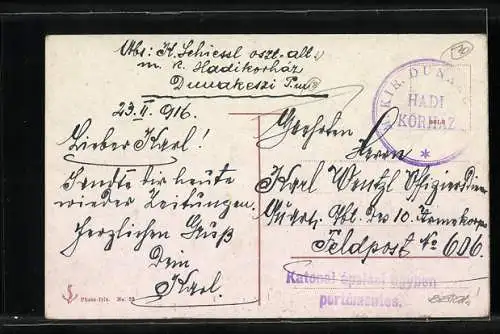 Abs: K. Schiessl oszt. alt.
m. k. Hadikorház
Dunakeszi P.m.
23.II.916.
Lieber Karl!
Sandte dir heute
wieder Zeitungen.
Herzlichen Gruß
Dein
Karl.
KIR. DUNA
HADI
KORHÁZ
Geehrten
Herrn
Karl Wentzl Offiziersdien
Quart. Abt. des 10. Armeekorps
Feldpost No 606.
Katonai ápolási ügyben
portómentes.
Photo-Btk. No. 52